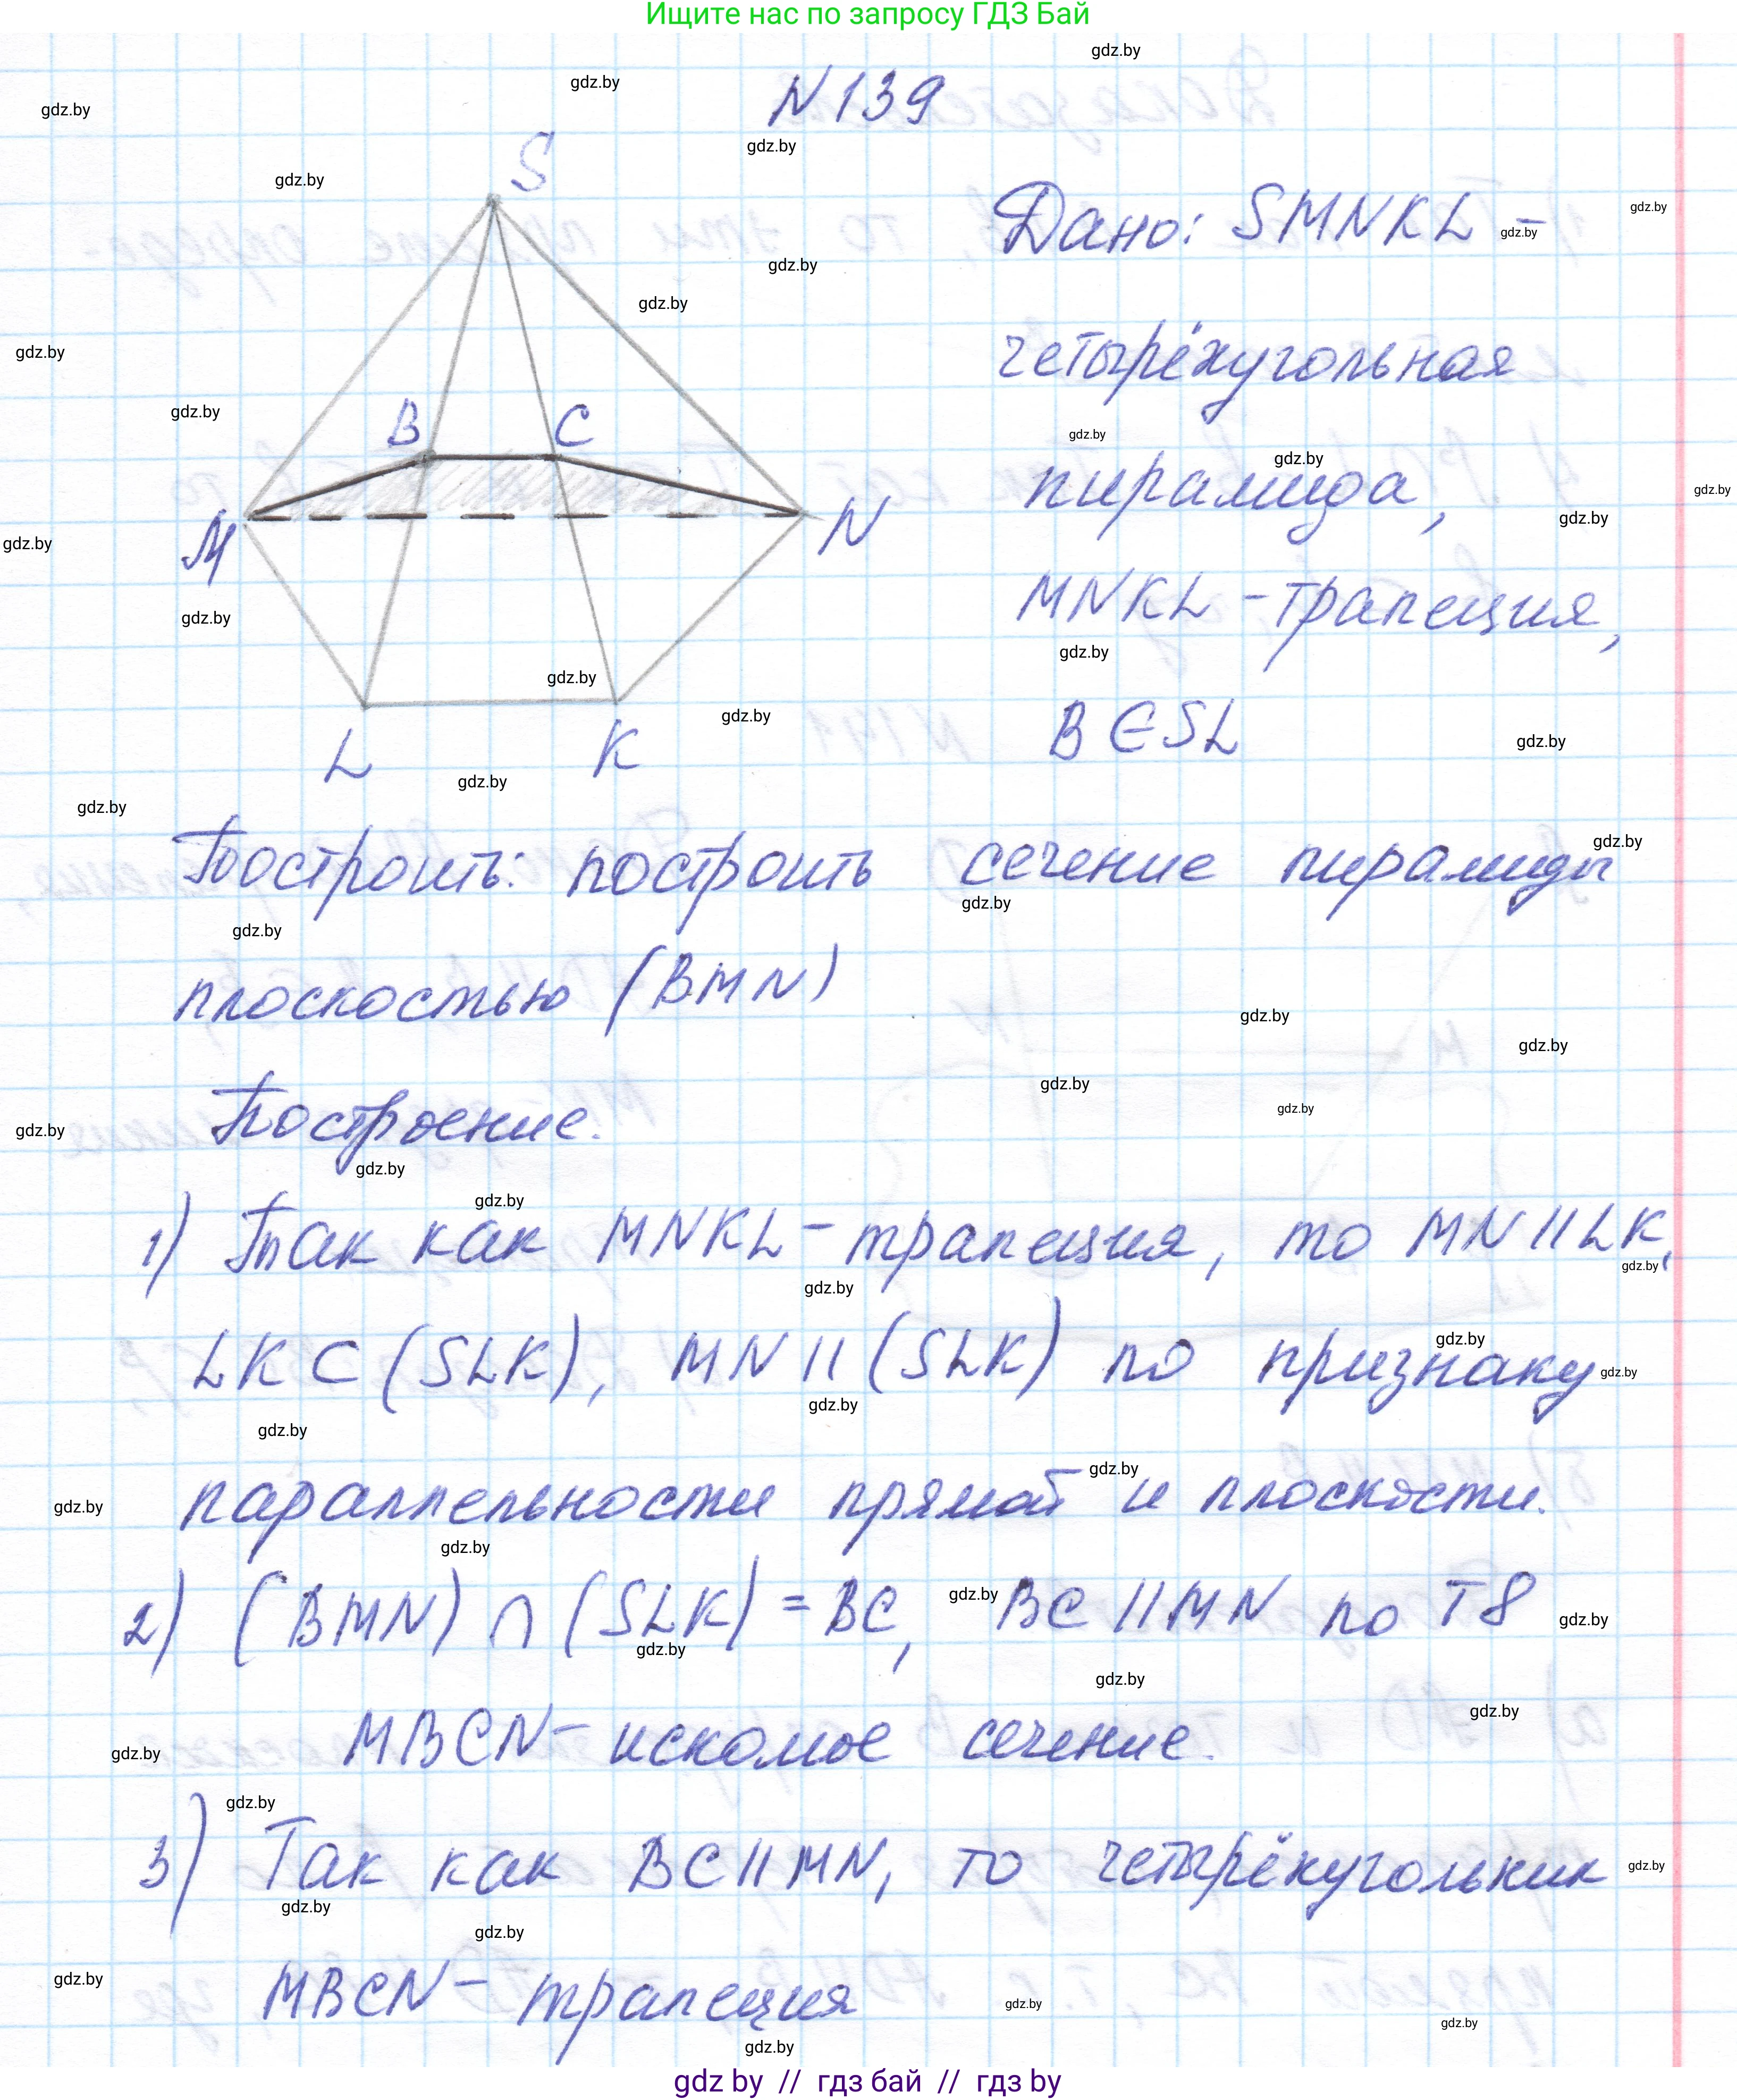 Ищите нас по запросу ГДЗ Бай
N 139
S
B
C
M
N
L
K
Дано: SMNKL –
четырёхугольная
пирамида,
MNKL – трапеция,
B ∈ SL
Построить: построить сечение пирамиды
плоскостью (BMN)
Построение.
1) Так как MNKL – трапеция, то MN || LK,
LK ⊂ (SLK), MN || (SLK) по признаку
параллельности прямой и плоскости.
2) (BMN) ∩ (SLK) = BC, BC || MN по Т8
MBCN – искомое сечение.
3) Так как BC || MN, то четырёхугольник
MBCN – трапеция
gdz by // гдз бай // гдз by